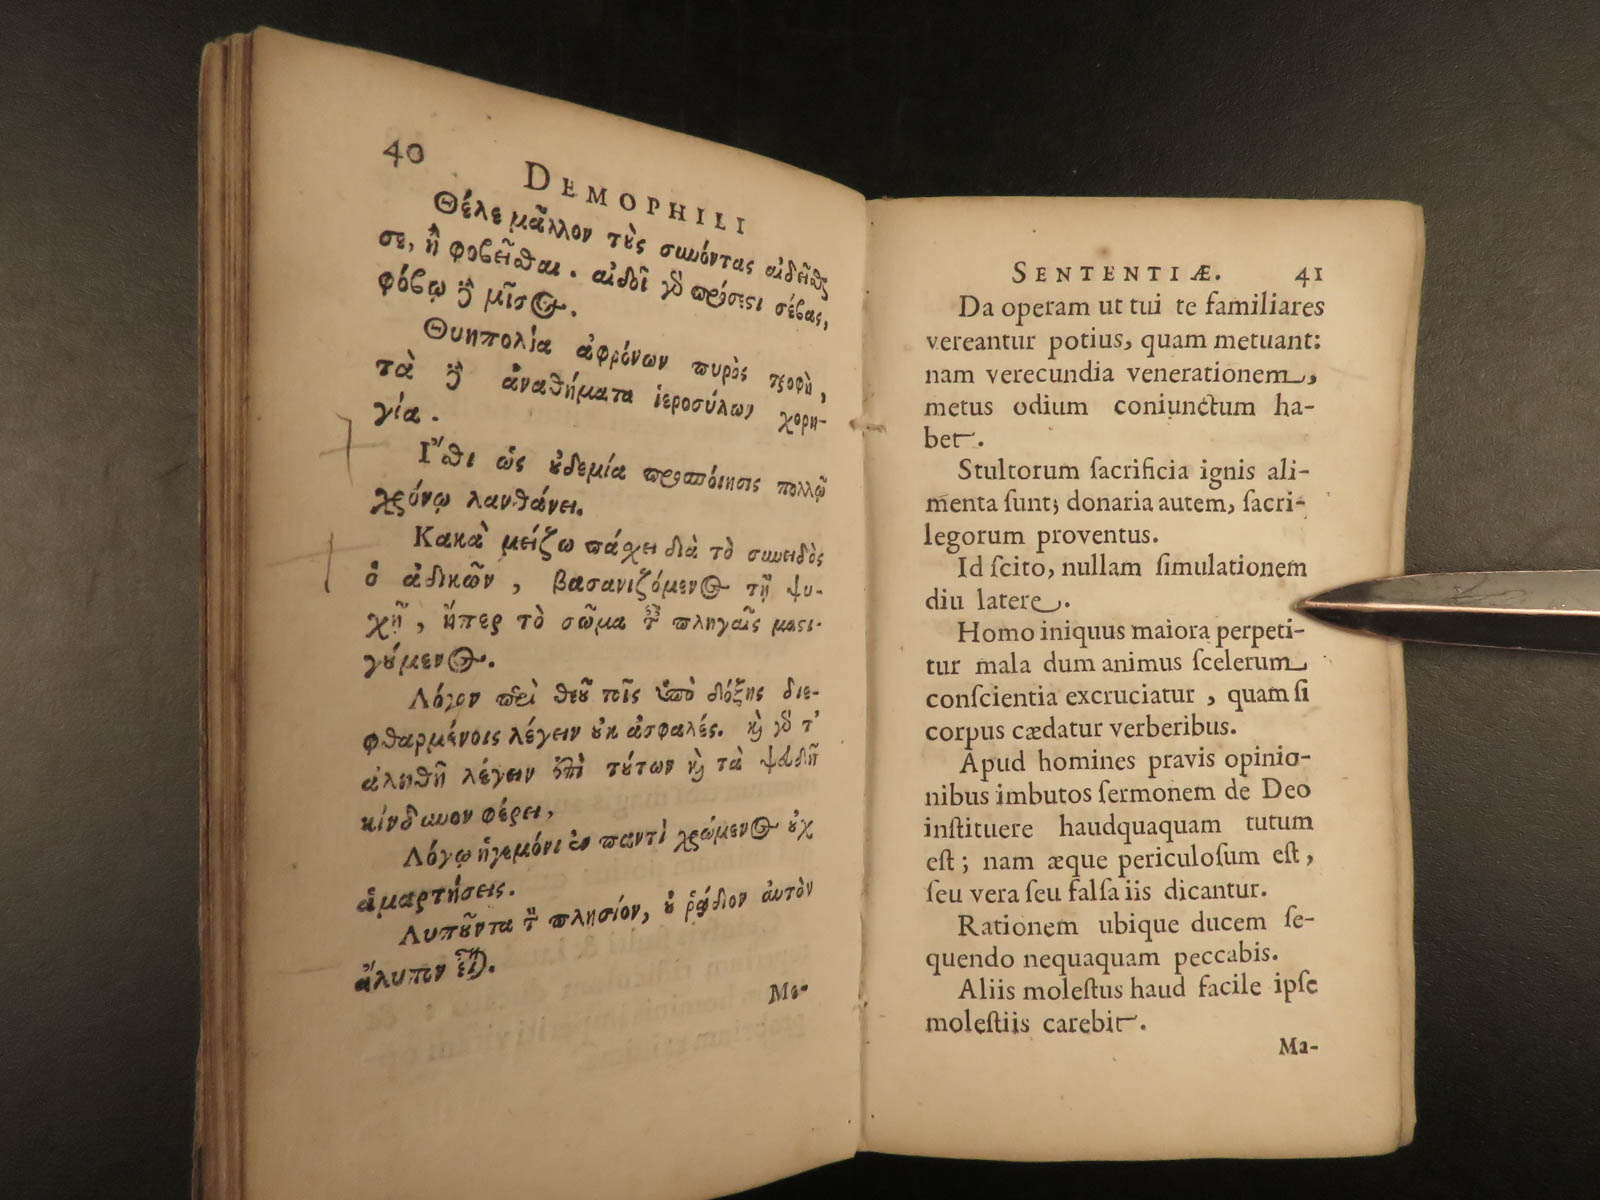 40 DEMOPHILI
Θέλε μᾶλλον τοὺς συνόντας αἰδεῖσθαί
σε, ἢ φοβεῖσθαι. αἰδοῖ γὰρ πρόσεστι σέβας,
φόβῳ δὲ μῖσος.
Θυηπολία ἀφρόνων πυρὸς τροφὴ,
τὰ δὲ ἀναθήματα ἱεροσύλων χορη-
γία.
Ἴσθι ὡς οὐδεμία προσποίησις πολλῷ
χρόνῳ λανθάνει.
Κακὰ μείζω πάσχει διὰ τὸ συνειδὸς
ὁ ἀδικῶν, βασανιζόμενος τῇ ψυ-
χῇ, ἤπερ τὸ σῶμα ταῖς πληγαῖς μαστι-
γούμενος.
Λόγον περὶ θεοῦ τοῖς ὑπὸ δόξης διε-
φθαρμένοις λέγειν οὐκ ἀσφαλές. καὶ γὰρ τ'
ἀληθῆ λέγειν ἐπὶ τούτων καὶ τὰ ψευδῆ
κίνδυνον φέρει,
Λόγῳ ἡγεμόνι ἐν παντὶ χρώμενος οὐχ
ἁμαρτήσεις.
Λυποῦντα τὸν πλησίον, οὐ ῥᾴδιον αὐτὸν
ἄλυπον εἶναι.
Με-
SENTENTIÆ. 41
Da operam ut tui te familiares
vereantur potius, quam metuant:
nam verecundia venerationem,
metus odium coniunctum ha-
bet.
Stultorum ſacrificia ignis ali-
menta ſunt; donaria autem, ſacri-
legorum proventus.
Id ſcito, nullam ſimulationem
diu latere.
Homo iniquus maiora perpeti-
tur mala dum animus ſcelerum
conſcientia excruciatur, quam ſi
corpus cædatur verberibus.
Apud homines pravis opinio-
nibus imbutos ſermonem de Deo
inſtituere haudquaquam tutum
eſt; nam æque periculoſum eſt,
ſeu vera ſeu falſa iis dicantur.
Rationem ubique ducem ſe-
quendo nequaquam peccabis.
Aliis moleſtus haud facile ipſe
moleſtiis carebit.
Ma-